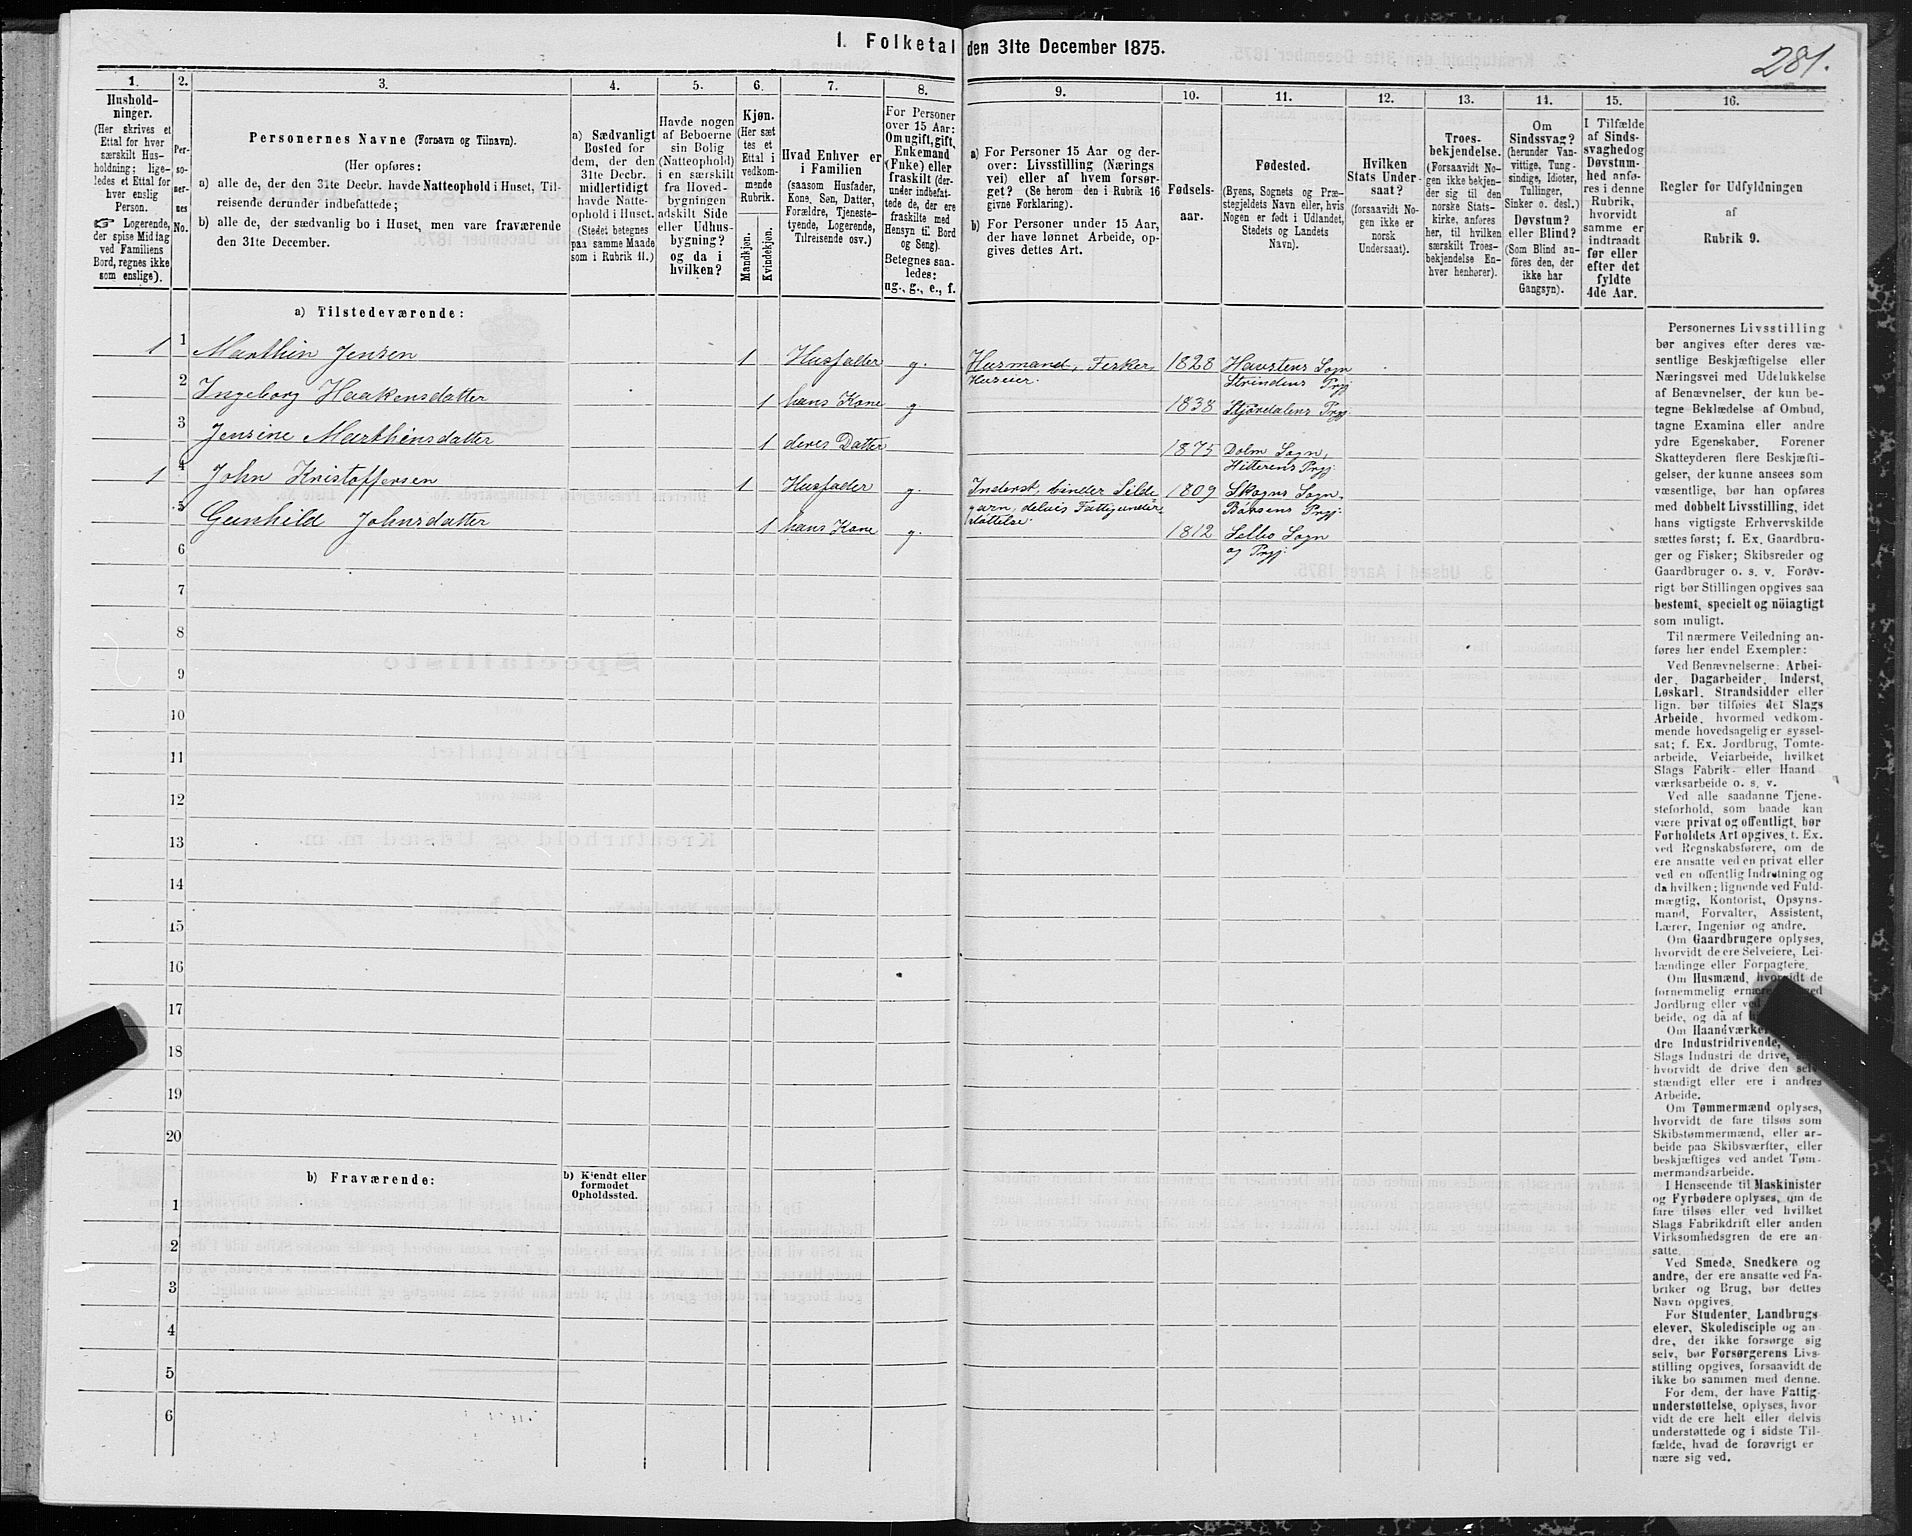 1. Folketal den 31te December 1875.
281.
1.
Hushold-
ninger.
(Her skrives et
Ettal for hver
særskilt Hus-
holdning; lige-
ledes et Ettal for
hver enslig
Person.
☞ Logerende,
der spise Middag
ved Familiens
Bord, regnes ikke
som enslige).
2.
Per-
so-
ner-
nes
No.
3.
Personernes Navne (Fornavn og Tilnavn).
(Her opføres:
a) alle de, der den 31te Decbr. havde Natteophold i Huset, Til-
reisende derunder indbefattede;
b) alle de, der sædvanlig bo i Huset, men vare fraværende
den 31te December.
4.
a) Sædvanligt
Bosted for
dem, der den
31te Decbr.
midlertidigt
havde Natte-
ophold i Huset.
(Stedet betegnes
paa samme Maade
som i Rubrik 11.)
5.
Havde nogen
af Beboerne
sin Bolig
(Natteophold)
i en særskilt
fra Hoved-
bygningen
adskilt Side
eller Udhus-
bygning?
og da i
hvilken?
6.
Kjøn.
(Her sæt-
tes et
Ettal i
vedkom-
mende
Rubrik.
Mandkjøn.
Kvindekjøn.
7.
Hvad Enhver er
i Familien
(saasom Husfader,
Kone, Søn, Datter,
Forældre, Tjeneste-
tyende, Logerende,
Tilreisende osv.)
8.
For Personer
over 15 Aar:
Om ugift, gift,
Enkemand
(Enke) eller
fraskilt (der-
under indbefat-
tede de, der ere
fraskilte med
Hensyn til Bord
og Seng).
Betegnes saa-
ledes:
ug., g., e., f.
9.
a) For Personer 15 Aar og der-
over: Livsstilling (Nærings
vei) eller af hvem forsør-
get? (Se herom den i Rubrik 16
givne Forklaring).
b) For Personer under 15 Aar,
der have lønnet Arbeide, op-
gives dettes Art.
10.
Fødsels-
aar.
11.
Fødested.
(Byens, Sognets og Præ-
stegjeldets Navn eller, hvis
Nogen er født i Udlandet,
Stedets og Landets
Navn).
12.
Hvilken
Stats Under-
saat?
(forsaavidt No-
gen ikke er
norsk
Undersaat).
13.
Troes-
bekjendelse.
(Forsaavidt No-
gen ikke bekjen-
der sig til den
norske Stats-
kirke, anføres
her, til hvilken
særskilt Troes-
bekjendelse En-
hver henhører).
14.
Om
Sindssvag?
(herunder Van-
vittige, Tung-
sindige, Idioter,
Tullinger,
Sinker o. desl.)
Døvstum?
eller Blind?
(Som Blind an-
føres den, der
ikke har
Gangsyn).
15.
I Tilfælde
af Sinds-
svaghed og
Døvstum-
hed anfø-
res i denne
Rubrik,
hvorvidt
samme er
indtraadt
før eller
efter det
fyldte
4de Aar.
16.
Regler for Udfyldningen
af
Rubrik 9.
a) Tilstedeværende:
1 1 Marthin Jensen 1 Husfader g. Husmand, Fisker, 1828 Haustens Sogn
Huseier. Strindens Prgj
2 Ingeborg Haakensdatter 1 hans Kone g 1838 Stjørdalens Prgj
3 Jensine Marthinsdatter 1 deres Datter 1875 Dolm Sogn,
Hitterens Prgj:
1 4 John Kristoffersen 1 Husfader g. Inderst, binder Silde 1809 Skogns Sogn,
garn, delvis Fattigunder Børsens Prgj:
støttelse.
5 Gunhild Johnsdatter 1 hans Kone g. 1812 Selbo Sogn
og Prgj:
6
7
8
9
10
11
12
13
14
15
16
17
18
19
20
b) Fraværende:
b) Kjendt eller
formodet
Opholdssted.
1
2
3
4
5
6
Personernes Livsstilling
bør angives efter deres væ-
sentlige Beskjæftigelse eller
Næringsvei med Udelukkelse
af Benævnelser, der kun be-
tegne Beklædelse af Ombud,
tagne Examina eller andre
ydre Egenskaber. Forener
Skatteyderen flere Beskjæfti-
gelser, der kunne ansees som
væsentlige, bør han opføres
med dobbelt Livsstilling, idet
hans vigtigste Erhvervskilde
sættes først; f. Ex. Gaardbru-
ger og Fisker; Skibsreder og
Gaardbruger o. s. v. Forøv-
rigt bør Stillingen opgives saa
bestemt, specielt og nöiagtigt
som muligt.
Til nærmere Veiledning an-
føres her endel Exempler:
Ved Benævnelserne: Arbei-
der, Dagarbeider, Inderst,
Løskarl, Strandsidder eller
lign. bør tilføies det Slags
Arbeide, hvormed vedkom-
mende hovedsagelig er syssel-
sat; f. Ex. Jordbrug, Tomte-
arbeide, Veiarbeide, hvilket
Slags Fabrik- eller Haand
værksarbeide o. s. v.
Ved alle saadanne Tjene-
steforhold, som baade kan
være privat og offentligt, bør
Forholdets Art opgives, t. Ex.
ved Regnskabsførere, om de
ere ansatte ved en privat eller
ved en offentlig Indretning og
da hvilken; lignende ved Fuld-
mægtig, Kontorist, Opsyns-
mand, Forvalter, Assistent,
Lærer, Ingeniør og andre.
Om Gaardbrugere oplyses,
hvorvidt de ere Selveiere, Lei-
lændinge eller Forpagtere.
Om Husmænd, hvorvidt de
fornemmelig ernære
Jordbrug eller ved
beide, og da af
Om Haandværker
dre Industridrivende,
Slags Industri de drive,
hvorvidt de drive den selv-
stændigt eller ere i andres
Arbeide.
Om Tømmermænd oplyses,
hvorvidt de fare tilsøs som
Skibstømmermænd, eller ar-
beide paa Skibsværfter, eller
beskjæftiges ved andet Tøm-
mermandsarbeide.
I Henseende til Maskinister
og Fyrbødere oplyses, om de
fare tilsøs eller ved hvilket
Slags Fabrikdrift eller anden
Virksomhedsgren de ere an-
satte.
Ved Smede, Snedkere og
andre, der ere ansatte ved Fa-
briker og Brug, bør dettes
Navn opgives.
For Studenter, Landbrugs
elever, Skoledisciple og an
dre, der ikke forsørge sig
selv, bør Forsørgerens Livs-
stilling opgives, forsaavidt de
ikke bo sammen med denne.
For dem, der have Fattig-
understøttelse, oplyses, hvor-
vidt de ere helt eller delvis
understøttede og i sidste Til-
fælde, hvad de forøvrigt er
nære sig ved.